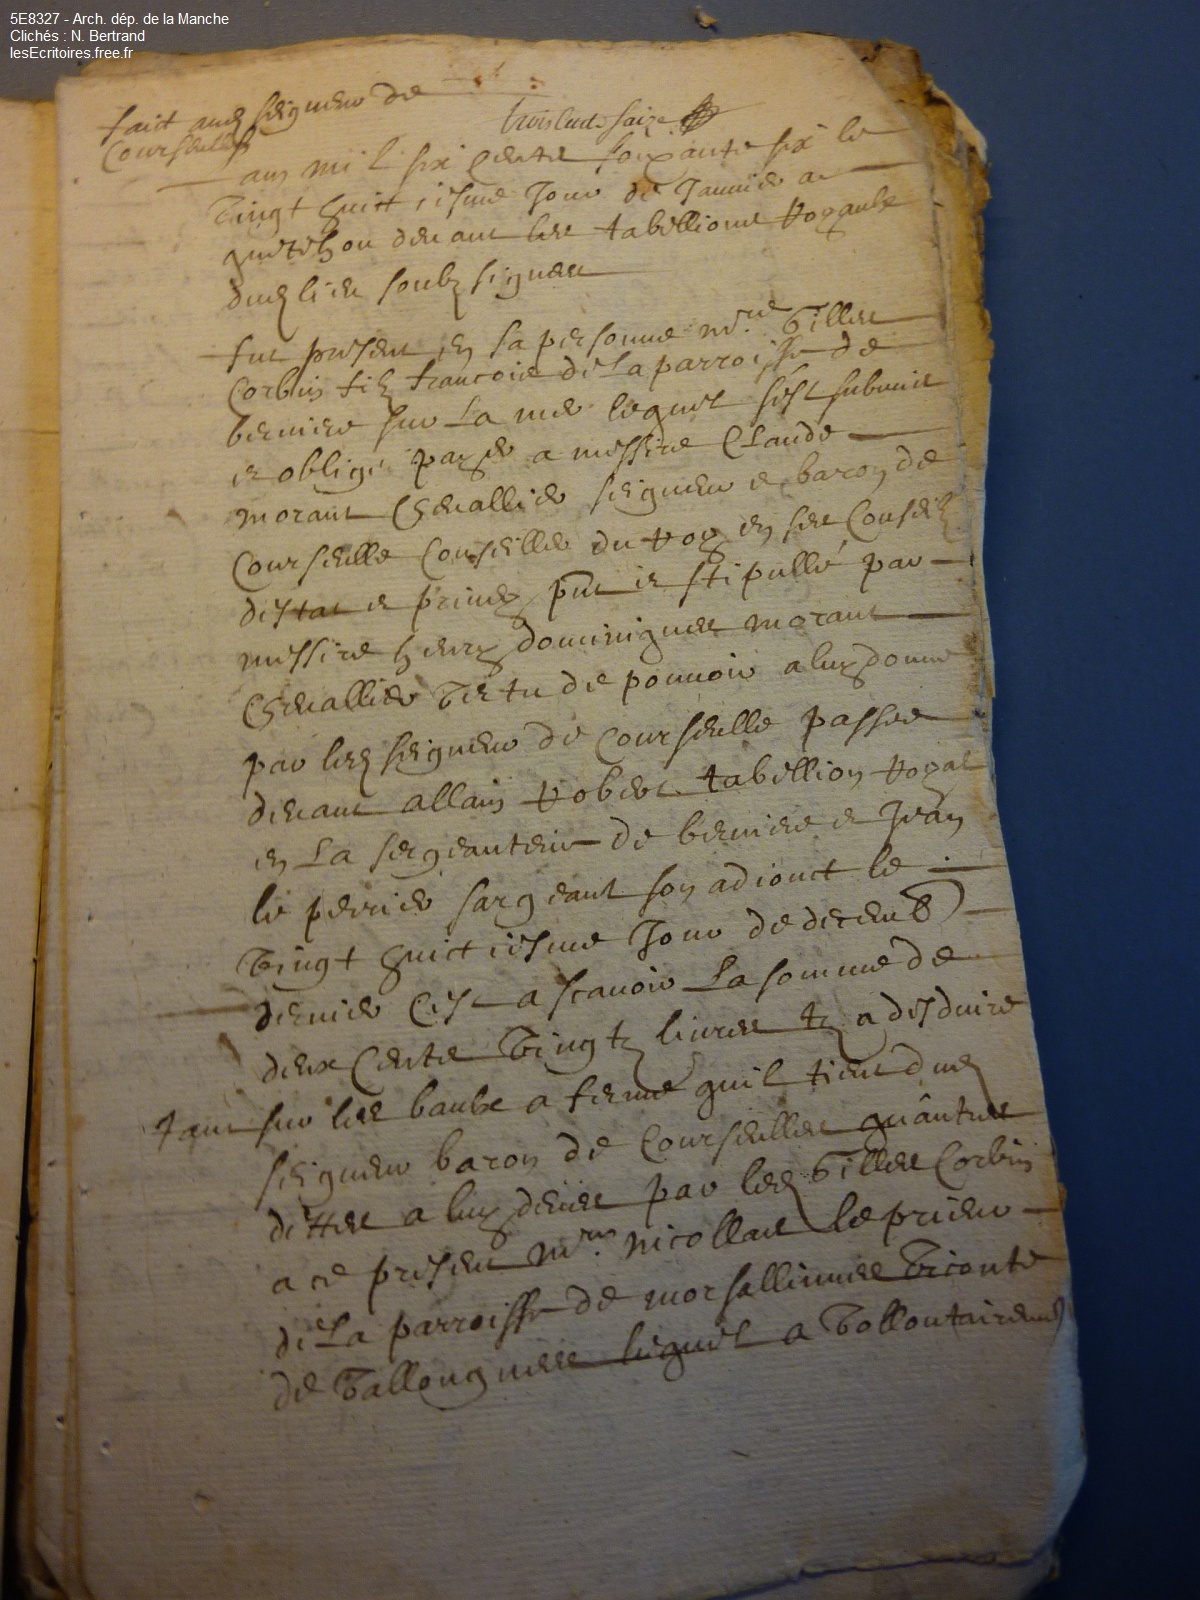 5E8327 - Arch. dép. de la Manche
Clichés : N. Bertrand
lesEcritoires.free.fr
faict aud seigneur de
Courseulles
trois cents saize
Lan mil six cents soixante six le
vingt huictiesme jour de Janvier a
quetehou devant les tabellions royaulx
dud lieu soubz signes
fut present en sa personne Mre Gilles
Corbin filz francois de la parroisse de
berniere sur la mer lequel sest submis
et obligé payer a messire Claude
morant Chevallier seigneur et baron de
Courseulle Conseiller du roy en ses Conseilz
destat et privey pnt et stipullé par
messire henry dominique morant
Chevallier vertu de pouvoir a luy donné
par led seigneur de Courseulle passé
devant allain robert tabellion royal
en la sergeanterie de berniere et Jean
le perrier sargeant son adjonct le
vingt huictiesme jour de decemb
dernier cest a scavoir la somme de
deux cents vingt livres tz a desduire
tant sur les baulx a ferme quil tient dud
seigneur baron de Courseulles quautres
dettes a luy deues par led Gilles Corbin
a ce present Mre nicollas le prieur
de la parroisse de morsallinnes viconté
de vallongnes lequel a vollontairement